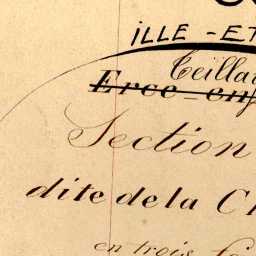 ILLE - ET
Teilla
Erce - en
Section
dite de la C
en trois